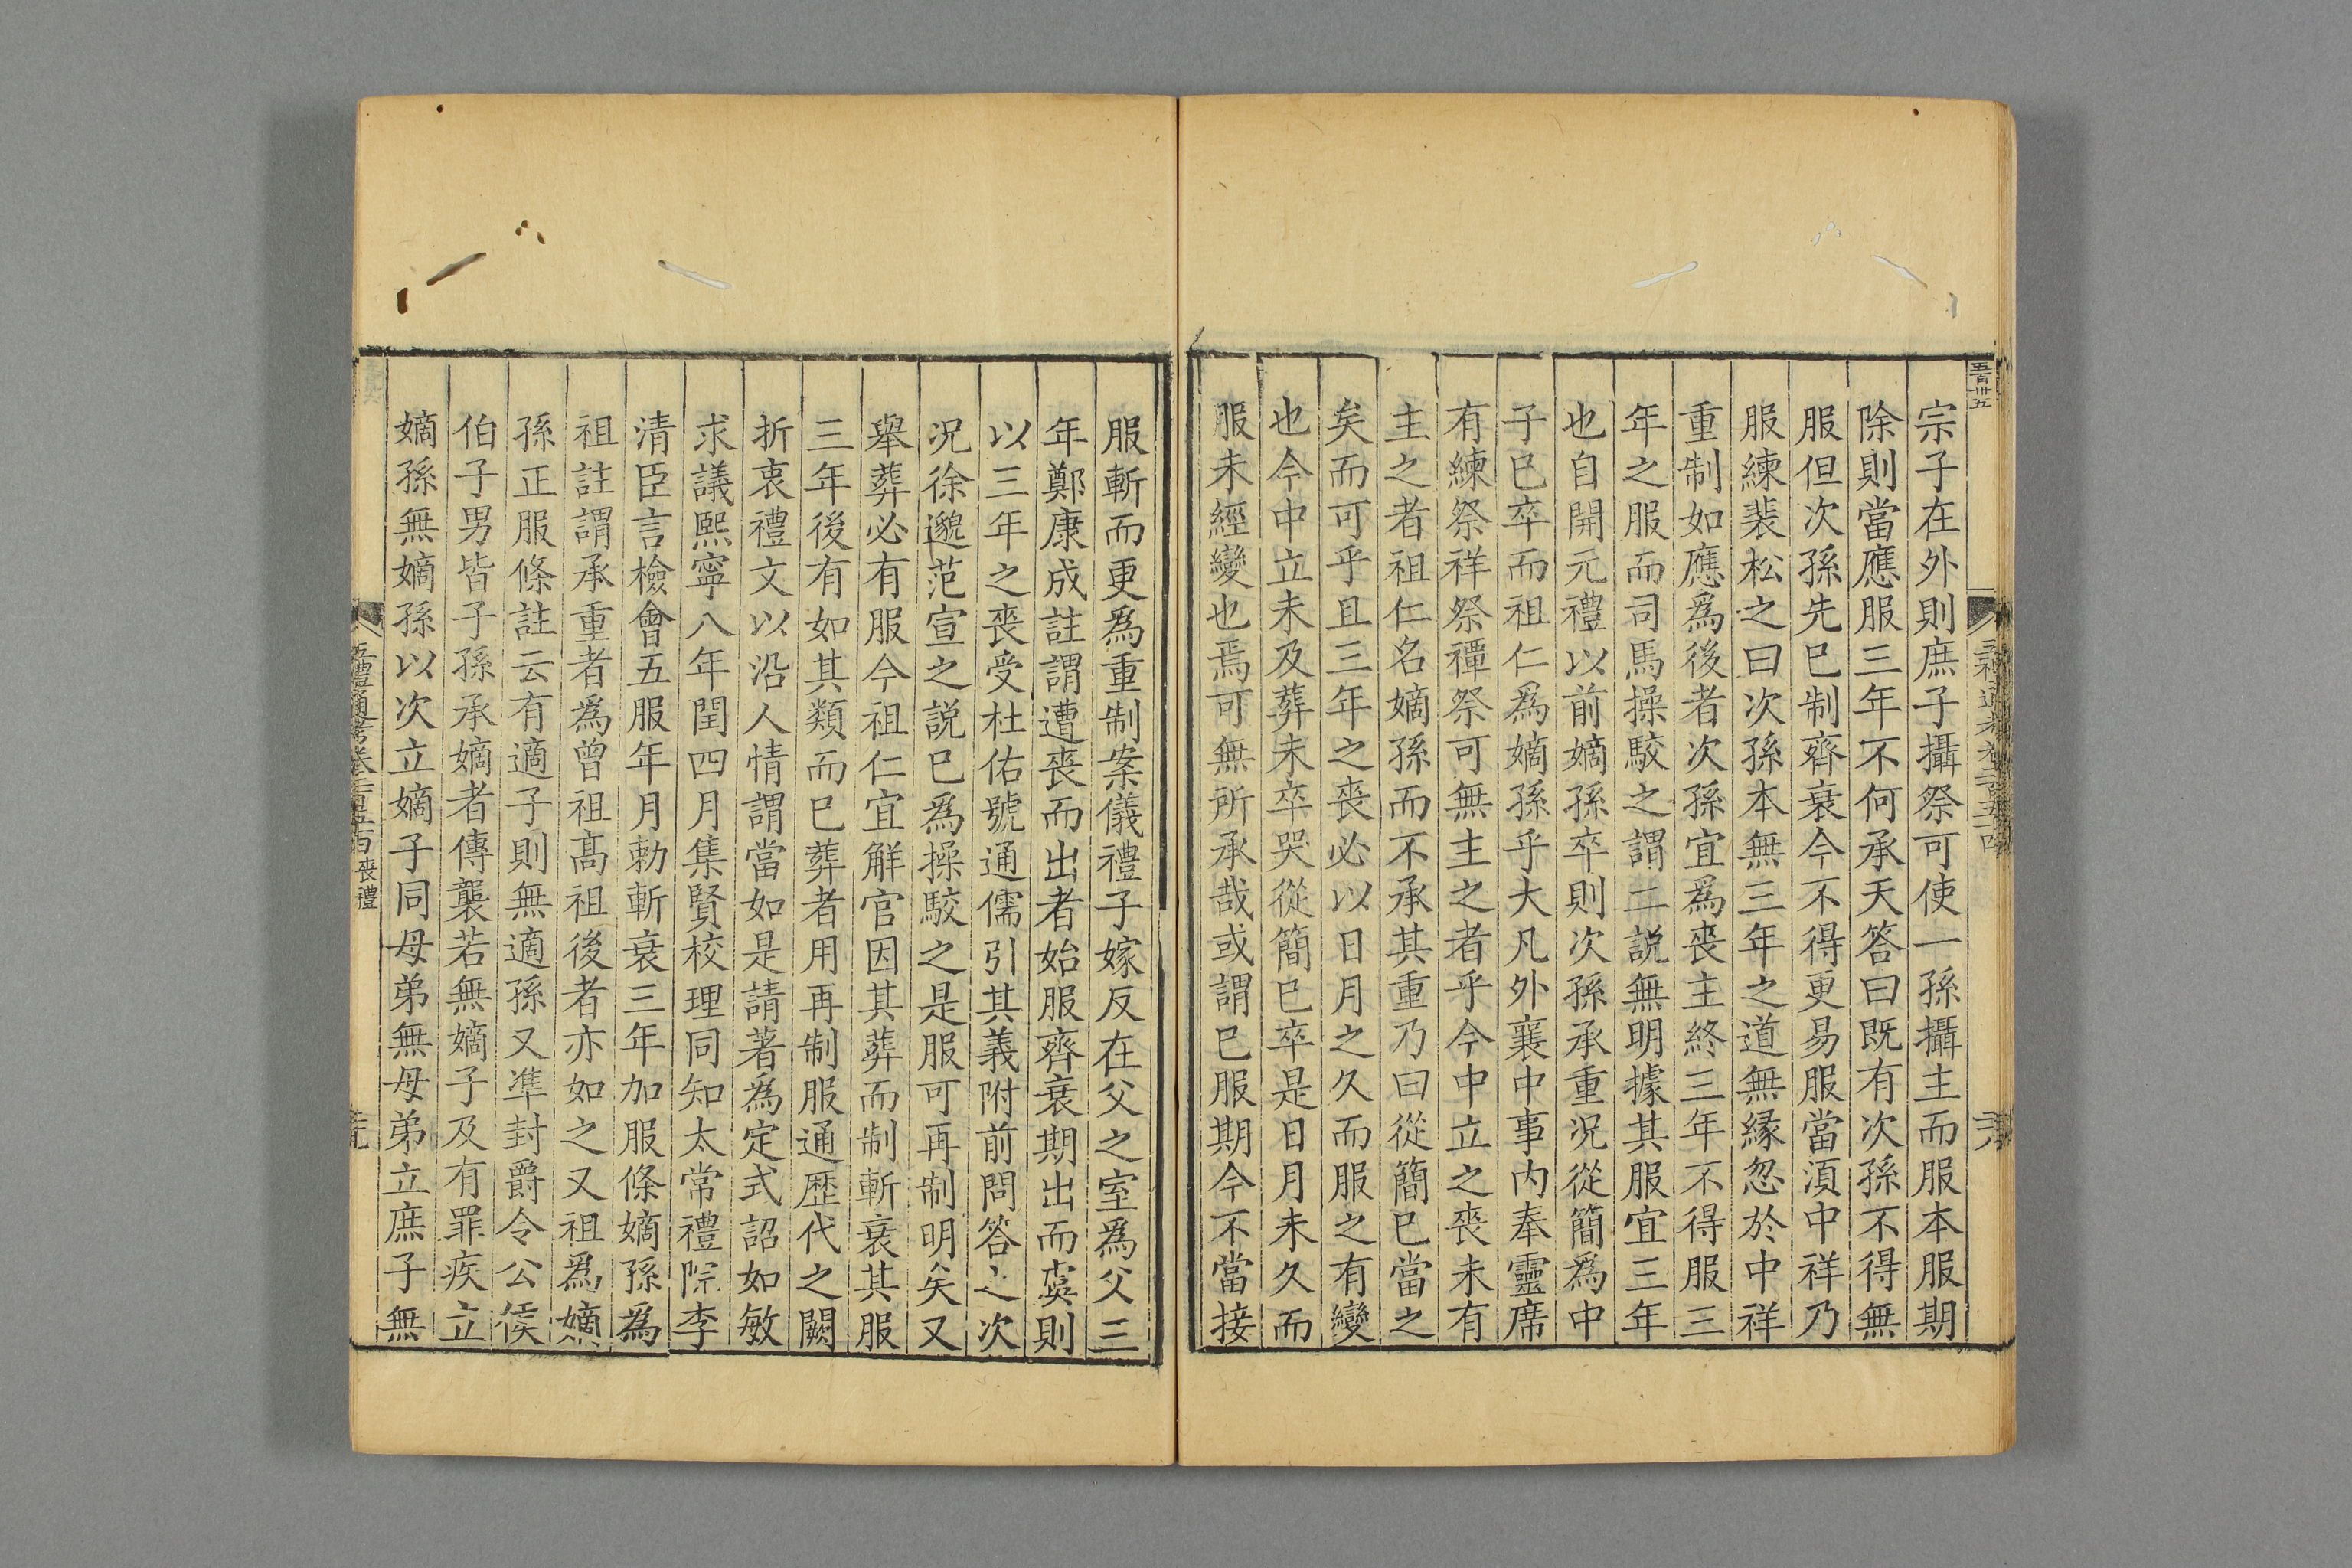 五百卅五
宗子在外則庶子攝祭可使一孫攝主而服本服期
除則當應服三年不何承天答曰既有次孫不得無
服但次孫先已制齊衰今不得更易服當湏中祥乃
服練裴松之曰次孫本無三年之道無緣忽於中祥
重制如應爲後者次孫宜爲喪主終三年不得服三
年之服而司馬操駮之謂二說無明據其服宜三年
也自開元禮以前嫡孫卒則次孫承重況從簡爲中
子已卒而祖仁爲嫡孫乎大凡外襄中事内奉靈席
有練祭祥祭禫祭可無主之者乎今中立之喪未有
主之者祖仁名嫡孫而不承其重乃曰從簡已當之
矣而可乎且三年之喪必以日月之久而服之有變
也今中立未及葬未卒哭從簡已卒是日月未久而
服未經變也焉可無所承哉或謂已服期今不當接
服斬而更爲重制案儀禮子嫁反在父之室爲父三
年鄭康成註謂遭喪而出者始服齊衰期出而虞則
以三年之喪受杜佑號通儒引其義附前問答之次
況徐邈范宣之說已爲操駮之是服可再制明矣又
舉葬必有服今祖仁宜解官因其葬而制斬衰其服
三年後有如其類而已葬者用再制服通歷代之闕
折衷禮文以沿人情謂當如是請著爲定式詔如敏
求議熙寧八年閏四月集賢校理同知太常禮院李
清臣言檢會五服年月勅斬衰三年加服條嫡孫爲
祖註謂承重者爲曾祖髙祖後者亦如之又祖爲嫡
孫正服條註云有適子則無適孫又凖封爵令公侯
伯子男皆子孫承嫡者傳襲若無嫡子及有罪疾立
嫡孫無嫡孫以次立嫡子同母弟無母弟立庶子無
五禮通考卷二百五十四 喪禮